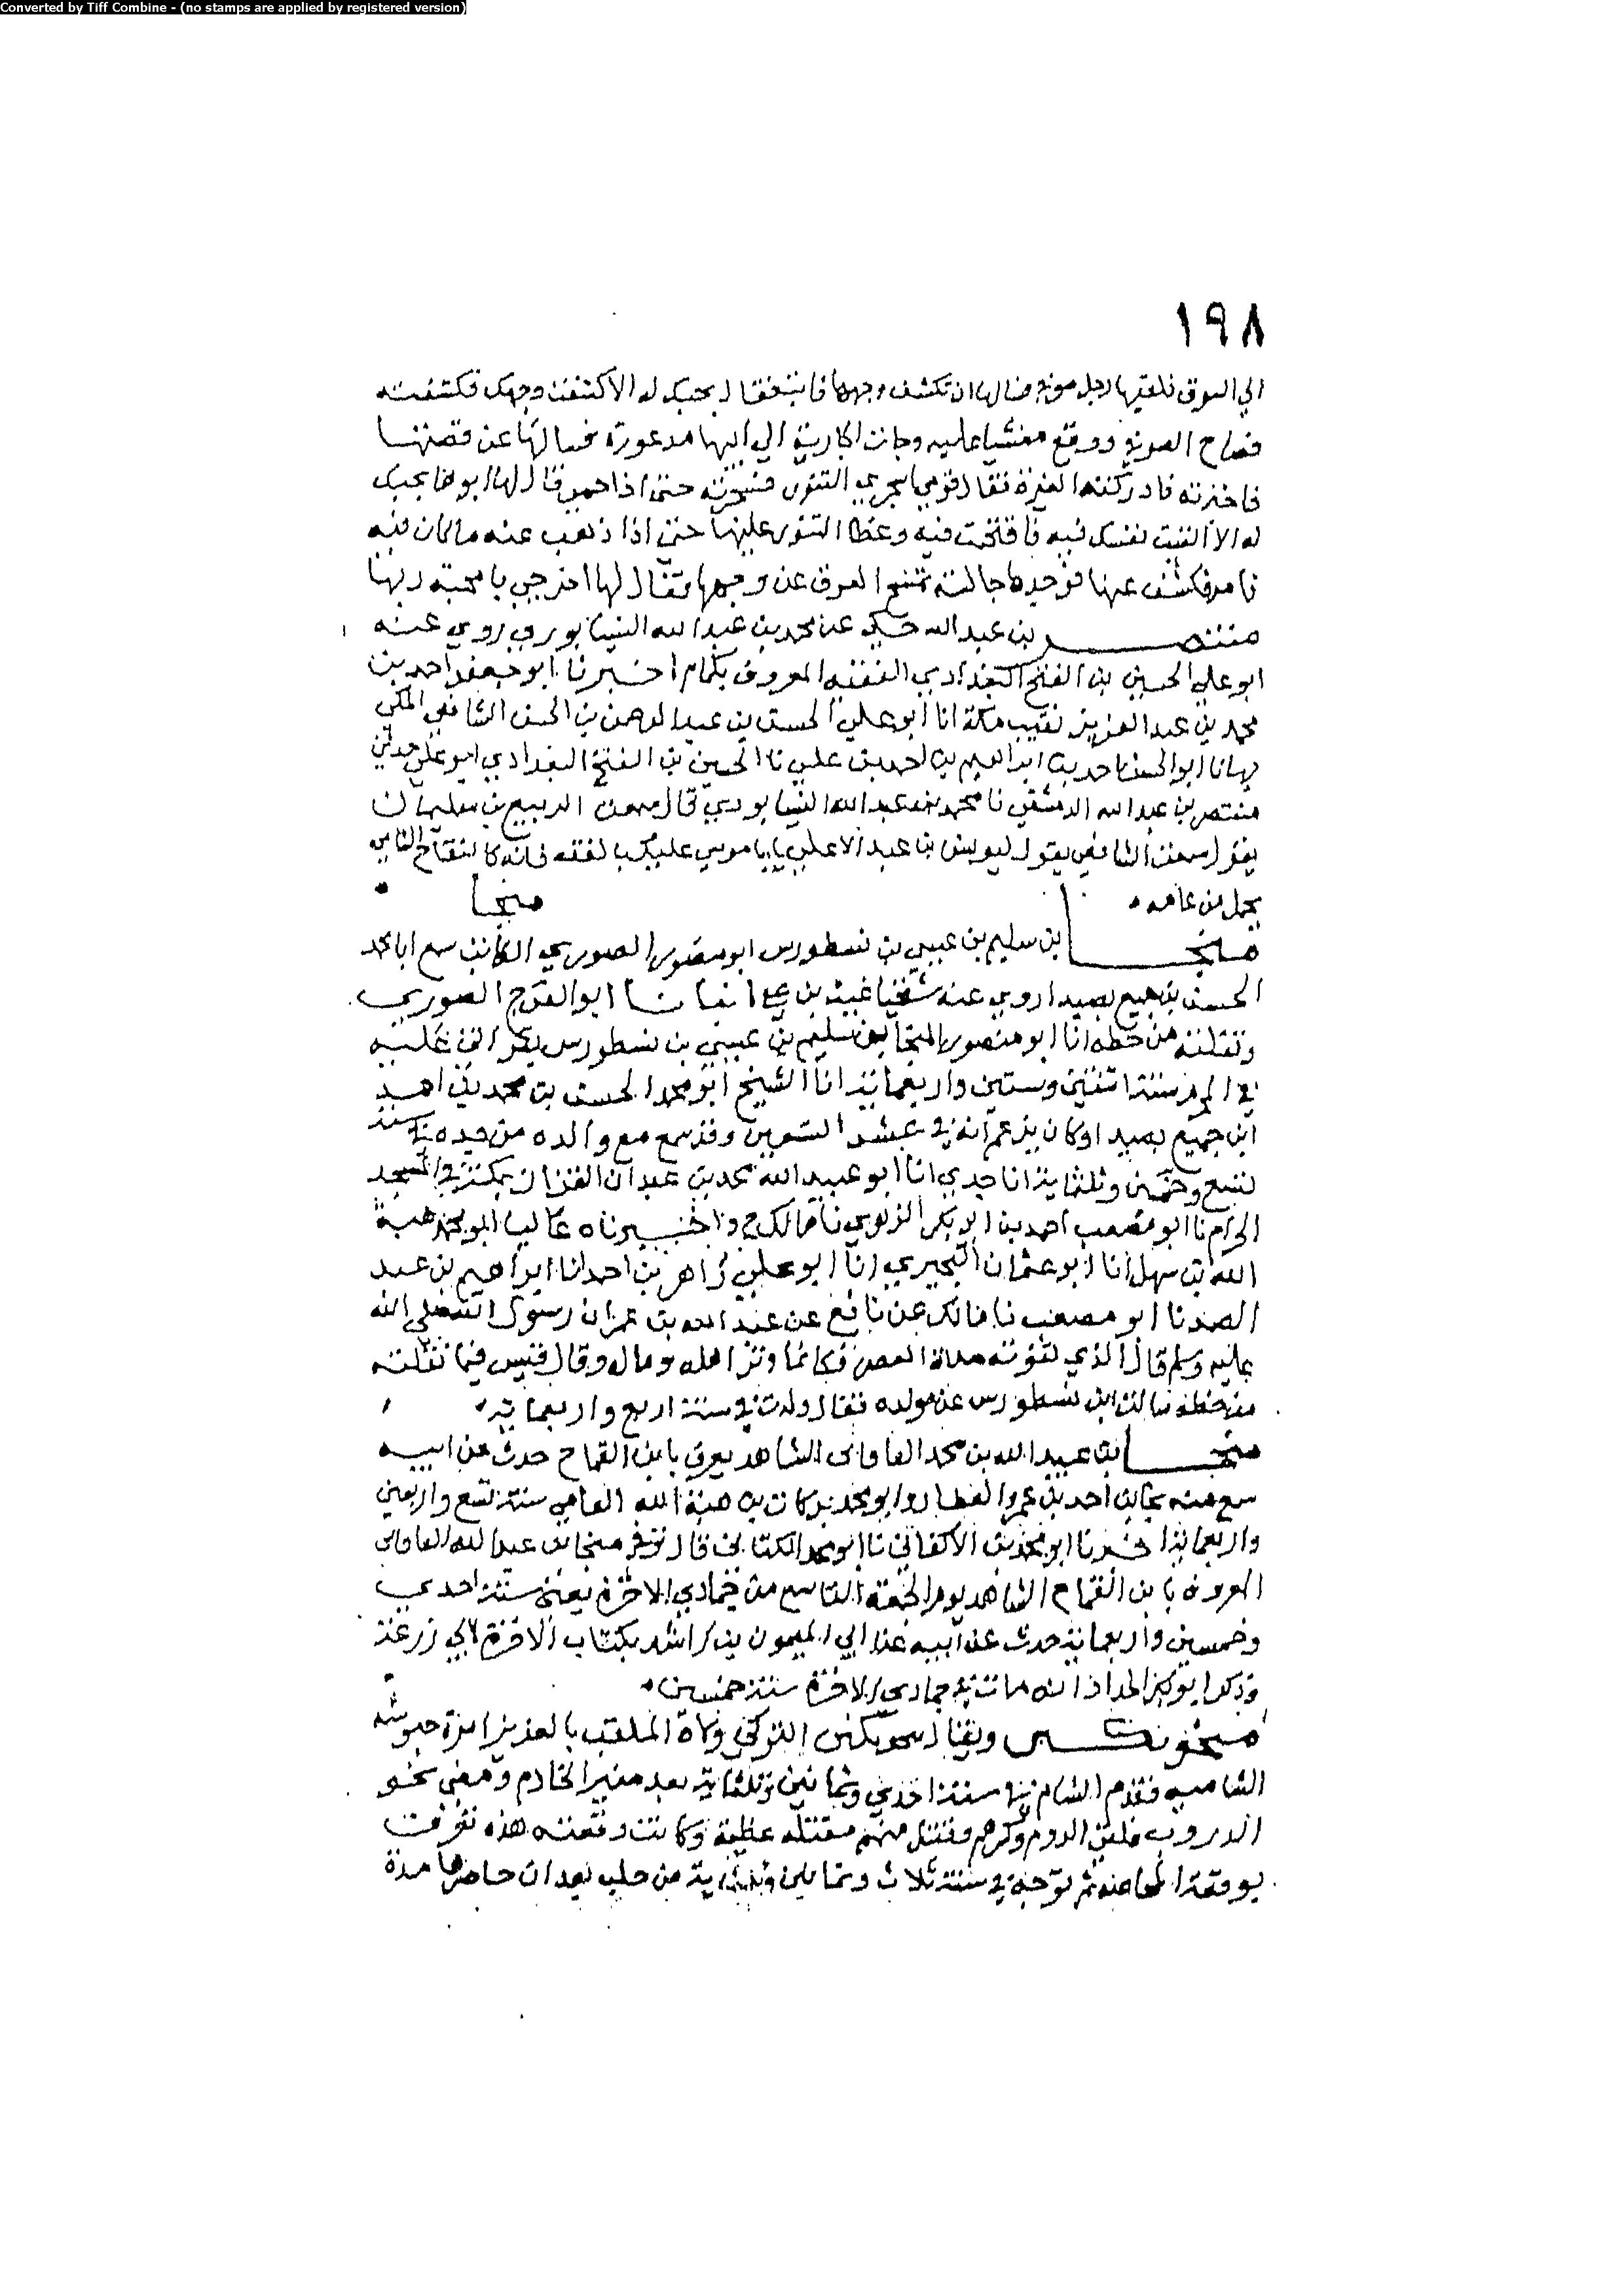 Converted by Tiff Combine - (no stamps are applied by registered version)
١٩٨
الي السوق فلقيها رجل صوفي فسالها ان تكشف وجهها فابت فقال بحبك له الا كشفت وجهك فكشفته
فصاح الصوفي ووقع مغشيا عليه وجات الجارية الي ابيها مدعورة فسالها عن قصتها
فاخبرته فادركته الغيرة فقال قومي اسجري التنور فسجرته حتى اذا حمي قال لها ابوها بحبك
له الا القيت نفسك فيه فاقتحمت فيه وغطا التنور عليها حتى اذا ذهب عنه ما كان فيه
نا مر فكشف عنها فوجدها جالسة تمسح العرق عن وجهها فقال لها اخرجي يا محبة ربها
منتصر بن عبد الله حكي عن محمد بن عبد الله النيسابوري روي عنه
ابو علي الحسين بن الفتح البغدادي الفقيه المعروف بكمام اخبرنا ابو جعفر احمد بن
محمد بن عبد العزيز نقيب مكة انا ابو علي الحسن بن عبد الرحمن بن الحسن الشافعي المكي
بها انا ابو الحسن احمد بن ابراهيم بن احمد بن علي نا الحسين بن الفتح البغدادي ابو علي حدثني
منتصر بن عبد الله الدمشقي نا محمد بن عبد الله النيسابوري قال سمعت الربيع بن سليمان
يقول سمعت الشافعي يقول ليونس بن عبد الاعلي يا با موسي عليك بالفقه فانه كالتفاح الشامي
يحمل من عامه
منجا
منجا بن سليم بن عيسي بن نسطورس ابو منصور الصوري الكاتب سمع ابا محمد
الحسن بن جميع بصيدا روي عنه شيخنا غيث بن علي انبانا ابو الفرج الصوري
ونقلته من خطه انا ابو منصور المنجا بن سليم بن عيسي بن نسطورس بقراتي عليه
في المحرم سنة اثنتين وستين واربعماية انا الشيخ ابو محمد الحسن بن محمد بن احمد
ابن جميع بصيدا وكان يزعم انه في عشر التسعين وقد سمع مع والده من جده في سنة
تسع وخمسين وثلثماية انا جدي انا ابو عبد الله محمد بن عبدان القزاز بمكة في المسجد
الحرام نا ابو مصعب احمد بن ابي بكر الزهري نا مالك ح واخبرناه عاليا ابو محمد هبة
الله بن سهل انا ابو عثمان البحيري انا ابو علي زاهر بن احمد انا ابراهيم بن عبد
الصمد نا ابو مصعب نا مالك عن نافع عن عبد الله بن عمر ان رسول الله صلي الله
عليه وسلم قال الذي تفوته صلاة العصر فكانما وتر اهله وماله وقال غيث فيما نقلته
من خطه سالت ابن نسطورس عن مولده فقال ولدت في سنة اربع واربعماية
منجا بن عبيد الله بن محمد الشاهد يعرف بابن القماح حدث عن ابيه
سمع منه نجا بن احمد بن عمرو العطار وابو محمد بن بركات بن هبة الله سنة تسع واربعين
واربعماية اخبرنا ابو محمد بن الاكفاني نا ابو محمد الكتاني قال توفي منجا بن عبد الله
المعروف بابن القماح الشاهد يوم الجمعة التاسع من جمادي الاخرة يعني سنة احدي
وخمسين واربعماية حدث عن ابيه عن ابي الميمون بن راشد بكتاب الاخوة لابي زرعة
وذكر ابو بكر الحداد انه مات في جمادي الاخرة سنة خمسين
منجوتكين ويقال التركي ولاه الملقب بالعزيز امرة جيوشه
الشامية فقدم الشام سنة احدي وثمانين وثلثماية بعد منير الخادم ومضي نحو
الدروب فلقي الروم وكسرهم وقتل منهم مقتلة عظيمة وكانت وقعته هذه تعرف
بوقعة المخاضة ثم توجه في سنة ثلاث وثمانين وثلثماية من حلب بعد ان حاصرها مدة